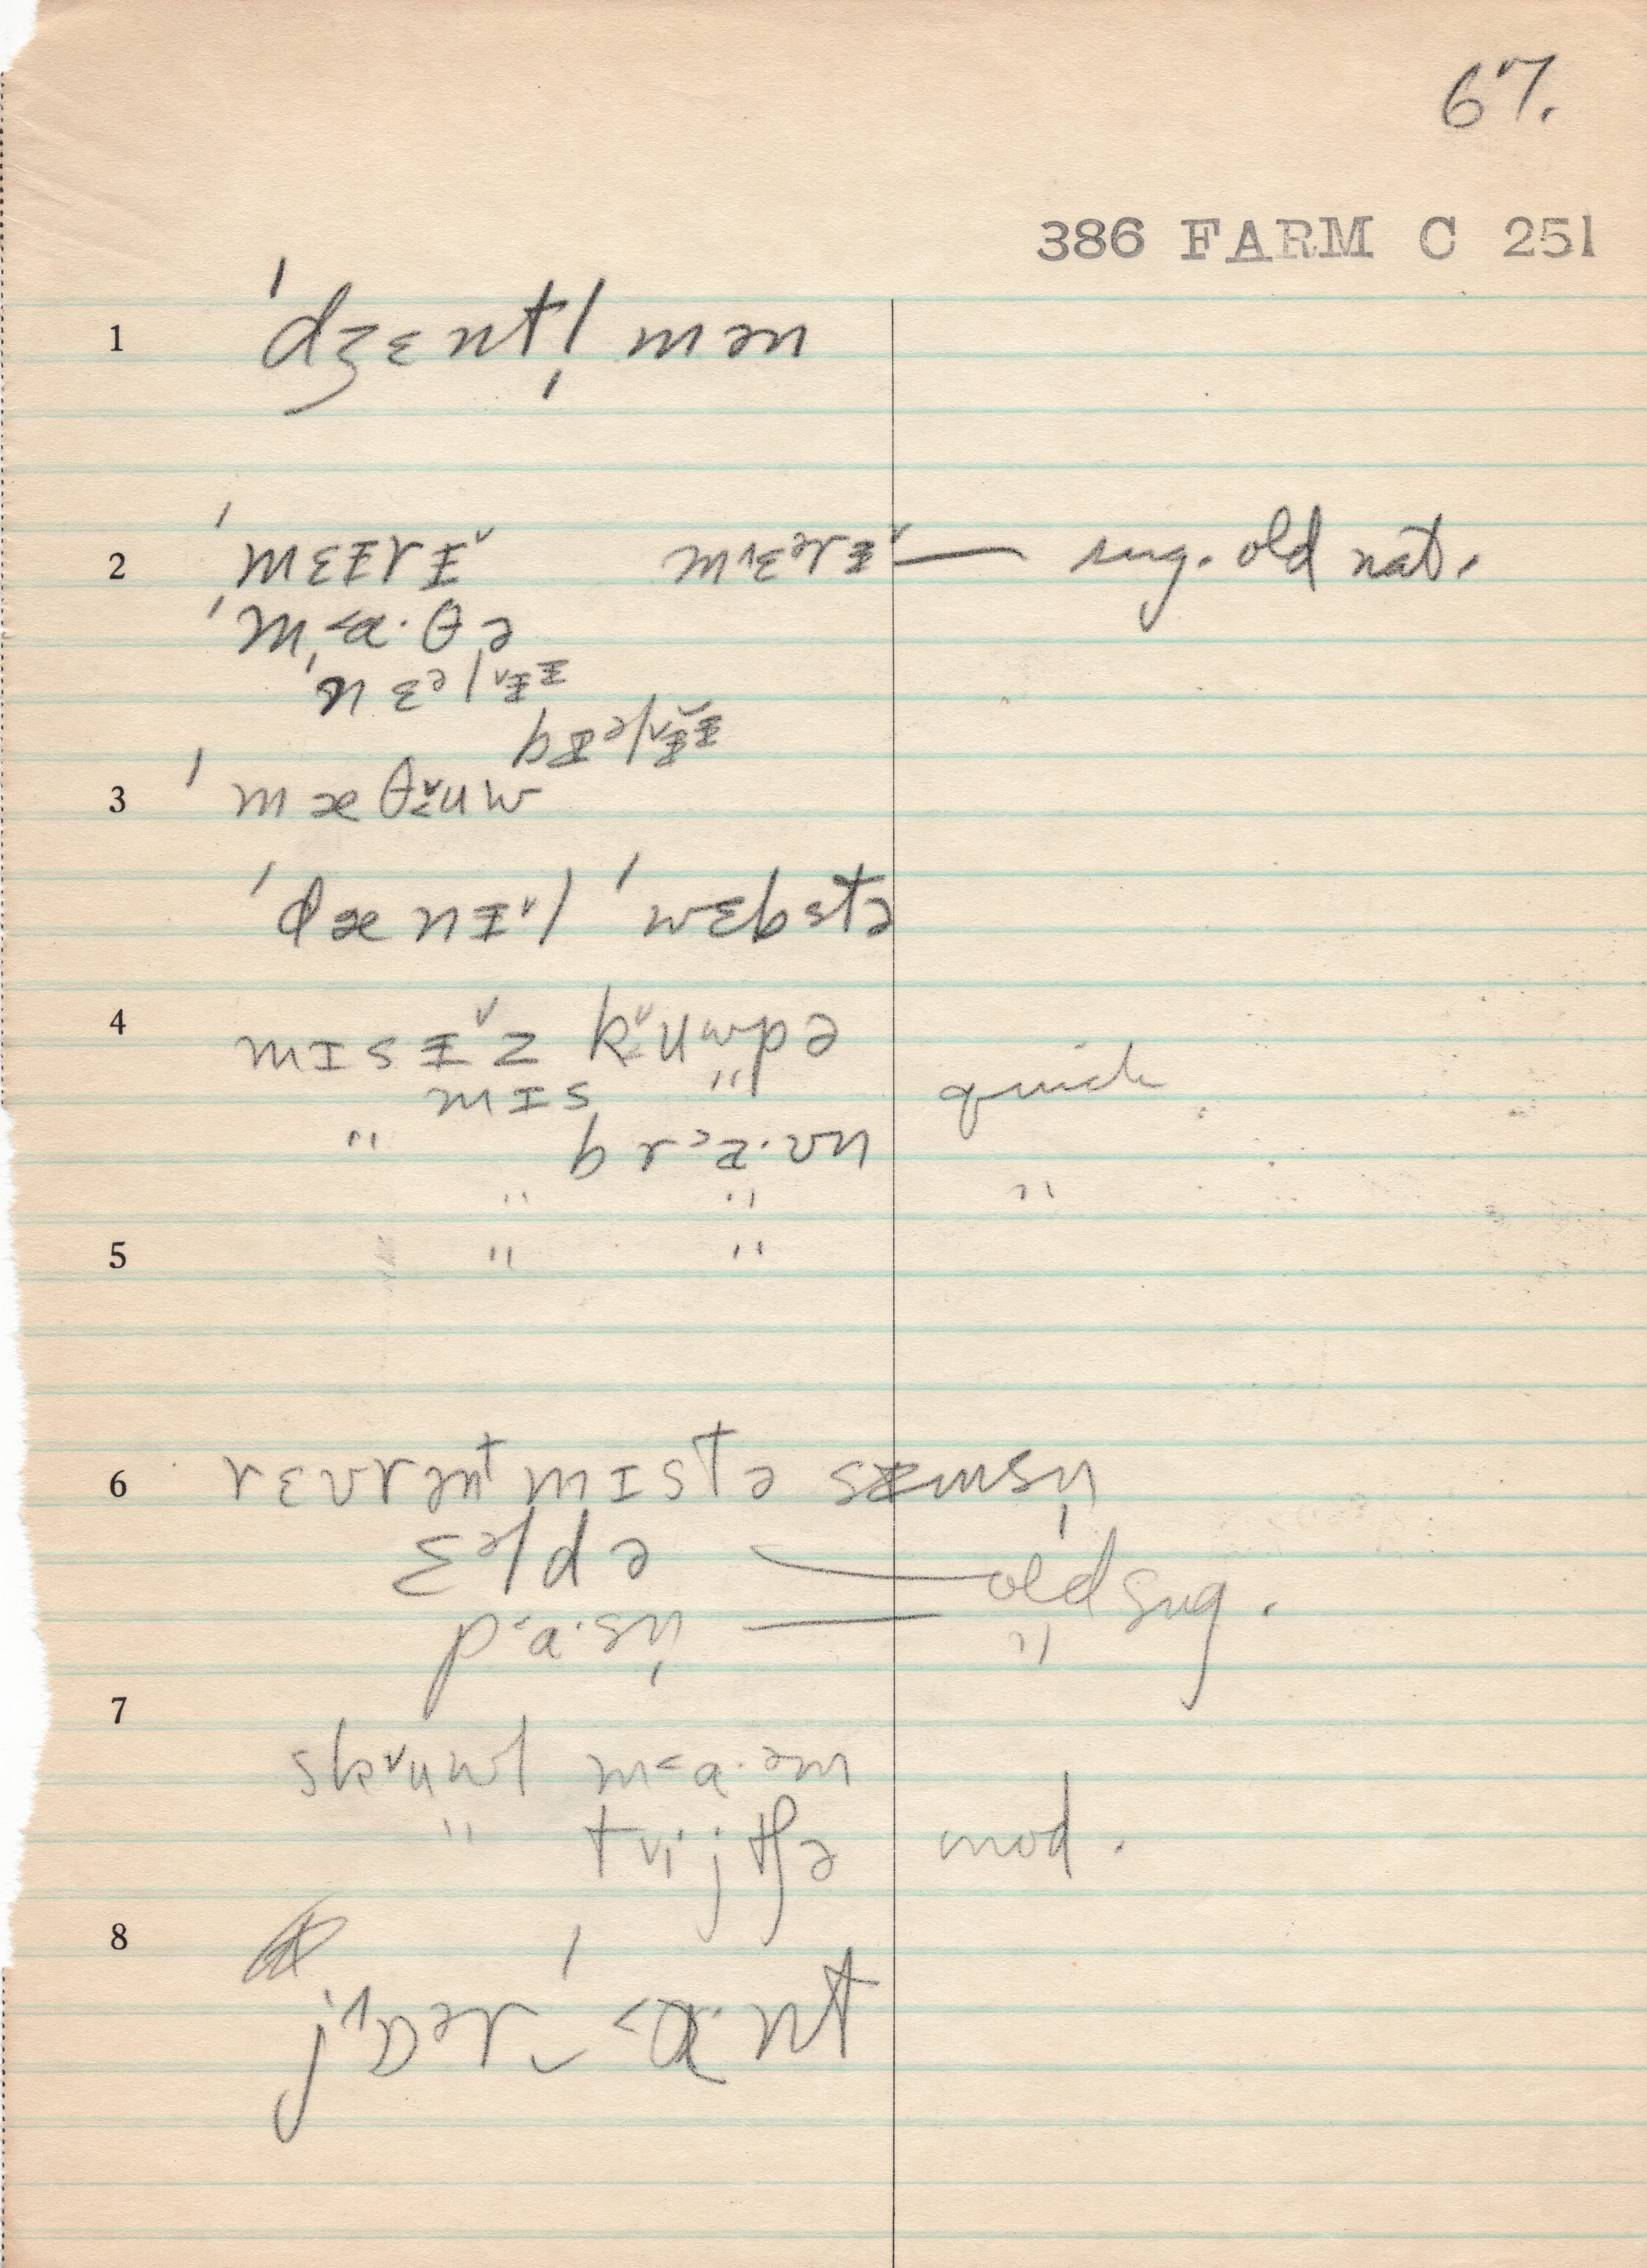 67.
386 FARM C 251
1 ˈdʒɛntl̩mən
2 ˈmɛɪ̵rɪ̵˅ m˄ɛᵊrɪ̵˅ — sug. old nat.
ˈm˂a·θə
ˈnɛᵊl˅ɪ̵ɪ̵
bɪ̵ᵊl˅ɪ̵ɪ̵
3 ˈmæθ˅ʉw
ˈdænɪ̵˅l ˈwɛbstə
4 mɪsɪ̵˅z k˅ʉwpə
mɪs " quick
" br˃a·ʊn
" " "
5 " "
6 rɛvrənt mɪstə sɪ̵msn̩
ɛᵊldə — old sug.
p˂a·sn̩ — "
7 sk˅uwl m˂a·ᵊm
" t˅ijtʃə mod.
8 j˄ɒᵊr‿ˈ˂ɑ·nt